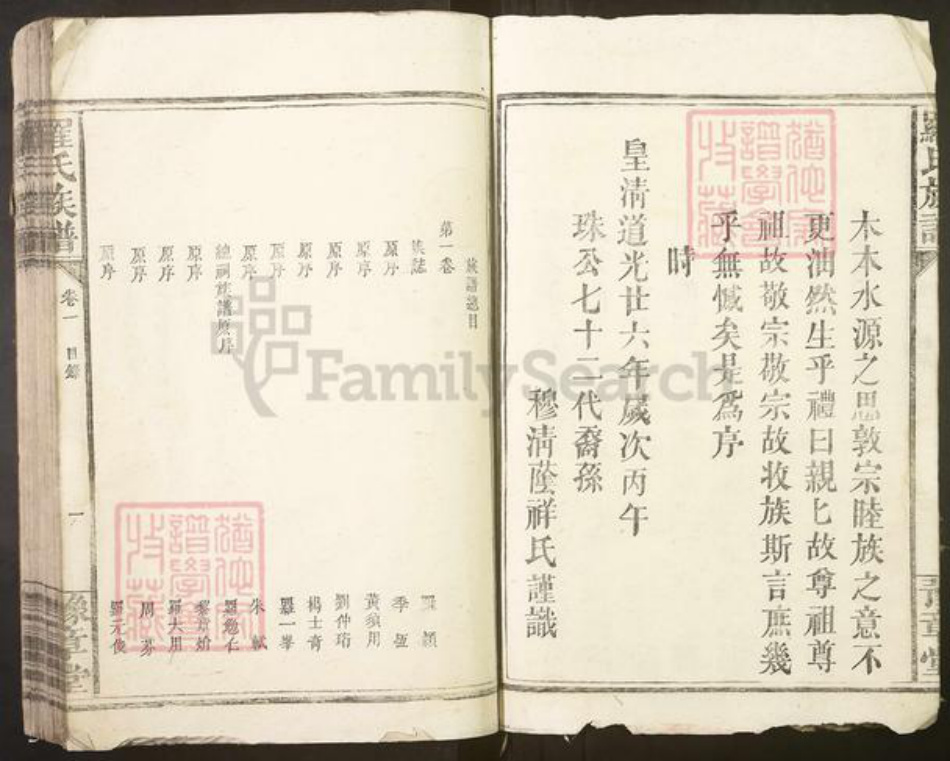 羅氏族譜
木本水源之思敦宗睦族之意不
更油然生乎禮曰親匕故尊祖尊
祖故敬宗敬宗故收族斯言庶幾
乎無憾矣是爲序
時
皇清道光廿六年歲次丙午
珠公七十二代裔孫
穆清蔭祥氏謹識
章堂
族譜總目
第一卷
族誌
原序 羅頴
原序 季恆
原序 黃須用
原序 劉仲珩
原序 楊士奇
原序 羅一峯
原序 朱軾
總祠族譜原序 羅勉仁
原序
原序 羅大用
原序 周芬
原序 羅元俊
羅氏族譜
卷一
目錄
一
豫章堂
猶他家譜學會收藏
猶他家譜學會收藏
FamilySearch